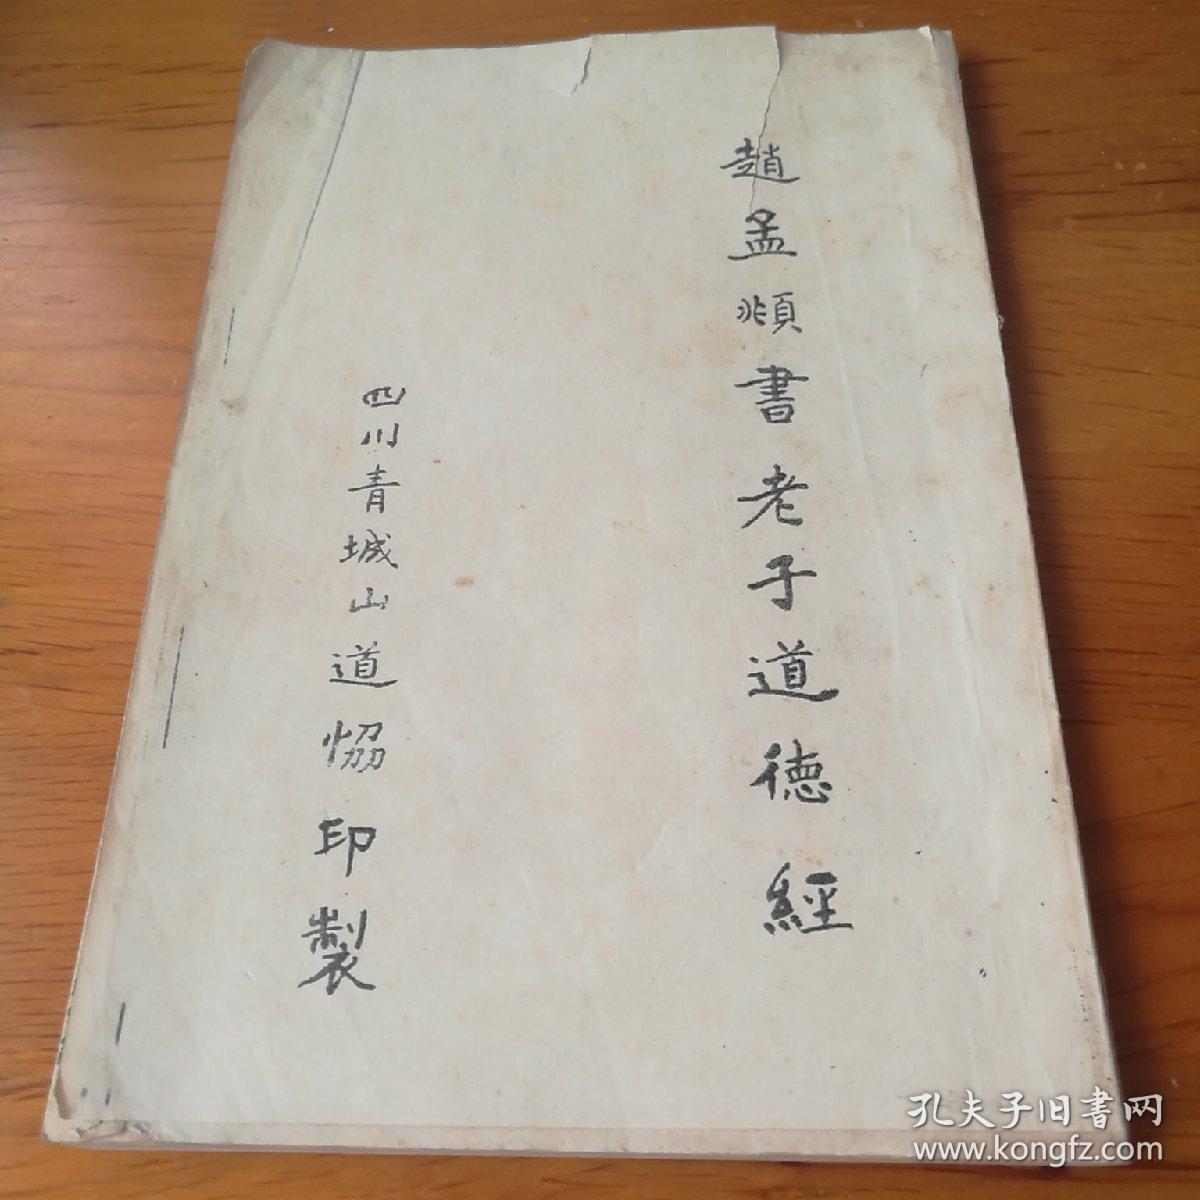 趙孟頫書老子道德經
四川青城山道恊印製
孔夫子旧书网
www.kongfz.com